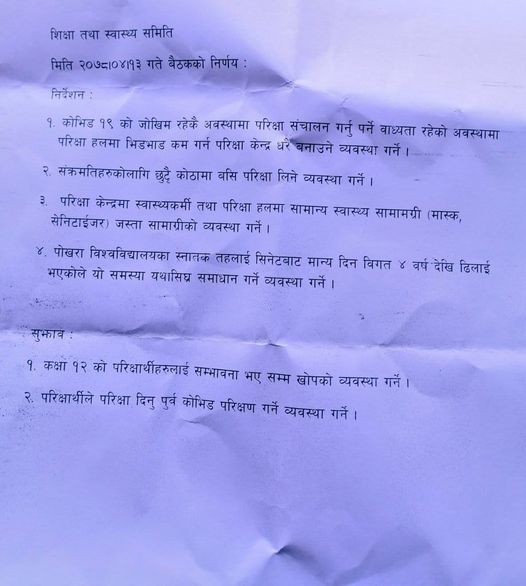 शिक्षा तथा स्वास्थ्य समिति
मिति २०७८।०४।१३ गते बैठकको निर्णय :
निर्देशन :
१. कोभिड १९ को जोखिम रहेकै अवस्थामा परिक्षा संचालन गर्नु पर्ने वाध्यता रहेको अवस्थामा
परिक्षा हलमा भिडभाड कम गर्न परिक्षा केन्द्र धरै बनाउने व्यवस्था गर्ने ।
२. संक्रमतिहरुकोलागि छुट्टै कोठामा बसि परिक्षा लिने व्यवस्था गर्ने ।
३. परिक्षा केन्द्रमा स्वास्थ्यकर्मी तथा परिक्षा हलमा सामान्य स्वास्थ्य सामामग्री (मास्क,
सेनिटाईजर) जस्ता सामाग्रीको व्यवस्था गर्ने ।
४. पोखरा विश्वविद्यालयका स्नातक तहलाई सिनेटबाट मान्य दिन विगत ४ वर्ष देखि ढिलाई
भएकोले यो समस्या यथासिघ्र समाधान गर्ने व्यवस्था गर्ने ।
सुझाव :
१. कक्षा १२ को परिक्षार्थीहरुलाई सम्भावना भए सम्म खोपको व्यवस्था गर्ने ।
२. परिक्षार्थीले परिक्षा दिनु पुर्व कोभिड परिक्षण गर्ने व्यवस्था गर्ने ।